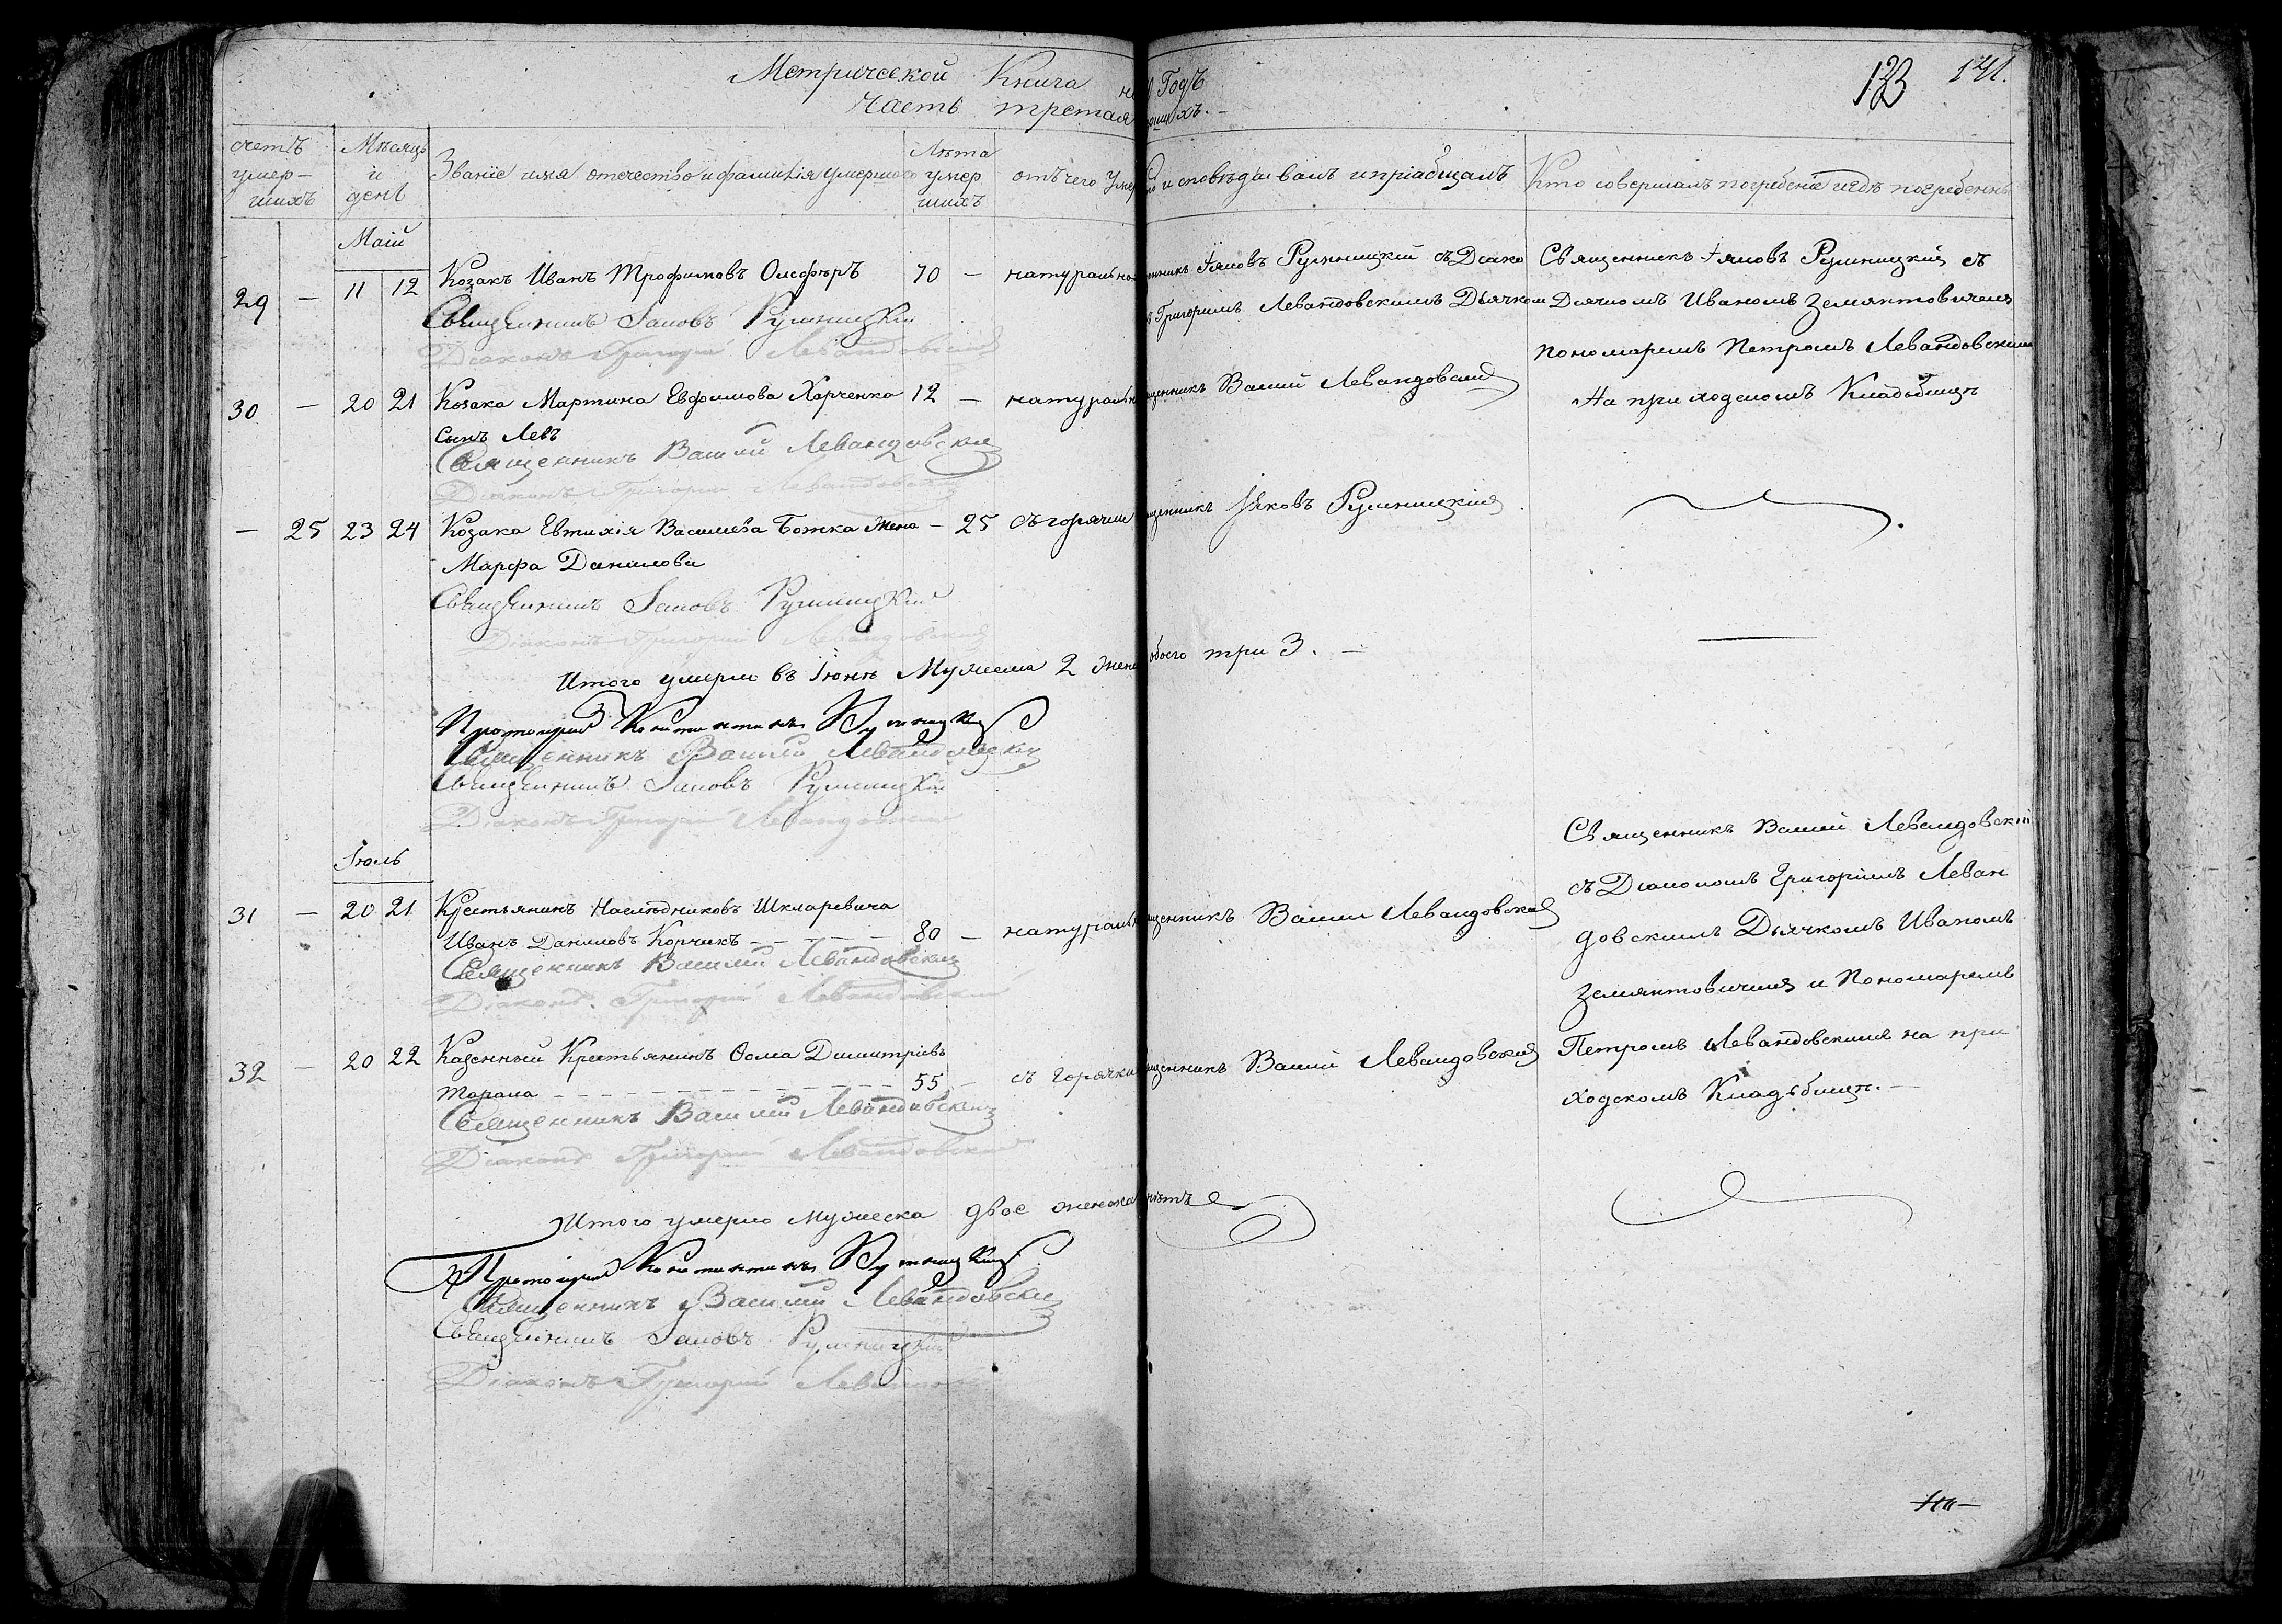 Метрической Книга на Годъ
Часть третая
123 141.
счетъ умер-шихъ
Мѣсяцъ и день
Званіе имя отечество и фамилія умершаго
Лѣта умер шихъ
отъ чего умер
и сповѣдывалъ и пріобщалъ
Кто совершалъ погребеніе и гдѣ погребенны
Маій
29 — 11 12 Козакъ Иванъ Трофимовъ Олефѣръ 70 — натуральн
Священникъ Іаковъ Румницкій
Діаконъ Григорій Левандовскій
енникъ Іяковъ Румницкій съ Діако
Григоріимъ Левандовскимъ Дьячком
Священникъ Іяковъ Румницкій съ
Дячкомъ Иваномъ Земянтовичемъ
пономаремъ Петромъ Левандовским
На при ходскомъ Кладбищѣ
30 — 20 21 Козака Мартина Евфимова Харченка 12 — натуральн
сынъ Левъ
Священникъ Василій Левандовскій
Діаконъ Григорій Левандовскій
щенникъ Василій Левандовскій
— 25 23 24 Козака Евтихія Василіева Божка жена — 25 съ горячки
Марфа Данилова
Священникъ Іаковъ Румницкій
Діаконъ Григорій Левандовскій
щенникъ Іяковъ Румницкій
Итого умерло въ Іюнѣ Мужеска 2 жен обоего три 3. —
Протоіерей Константинъ Румницкій
Священникъ Василій Левандовскій
Священникъ Іаковъ Румницкій
Діаконъ Григорій Левандовскій
Іюль
31 — 20 21 Крестьянинъ Наслѣдниковъ Шкларевича
Иванъ Даниловъ Корчикъ — 80 — натуральн
Священникъ Василій Левандовскій
Діаконъ Григорій Левандовскій
щенникъ Василій Левандовскій
Священникъ Василій Левандовскій
съ Діакономъ Григоріимъ Леван
довскимъ Дьячкомъ Иваномъ
Земянтовичемъ и Пономаремъ
Петромъ Левандовскимъ на при
ходскомъ Кладъбищѣ. —
32 — 20 22 Казенный Крестьянинъ Ѳома Димитріевъ
Тарана — 55 — съ горячки
Священникъ Василій Левандовскій
Діаконъ Григорій Левандовскій
щенникъ Василій Левандовскій
Итого умерло Мужеска двое женска нѣтъ
Протоіерей Константинъ Румницкій
Священникъ Василій Левандовскій
Священникъ Іаковъ Румницкій
Діаконъ Григорій Левандовскій